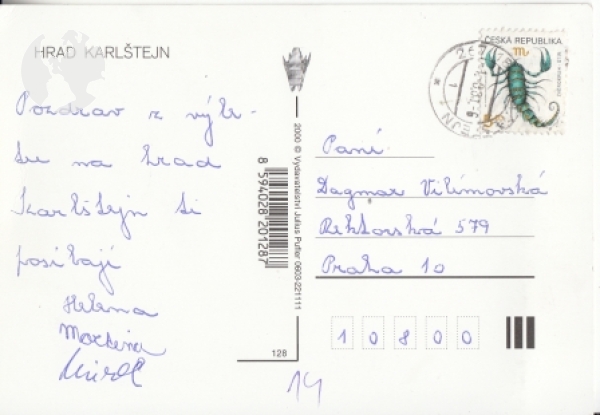 HRAD KARLŠTEJN
Pozdrav z výle-
tu na hrad
Karlštejn ti
posílají
Helena
Martina
128
2000 © Vydavatelství Julius Pufler 0603-221111
8 594028 201287
ČESKÁ REPUBLIKA
267 18
Paní
Dagmar Vilímovská
Rektorská 579
Praha 10
10800
14